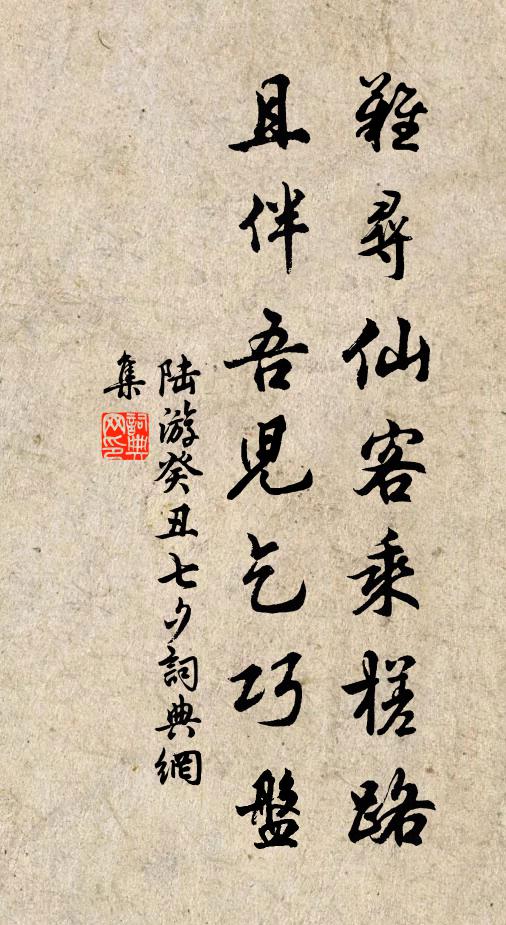 難尋仙客乘槎路
且伴吾兒乞巧盤
陸游癸丑七夕詞典網
集
詞典網印